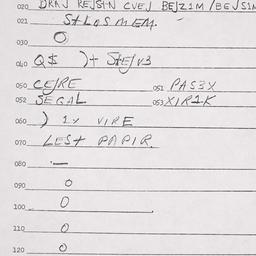 020 DRKJ REJStN CVEJ BEJZ1M /BEJS1M
021 StLOSMEM.
030 O
040 Q$ )+ StE/V3
050 CE/RE 051 PAS3X
052 SEGAL 053 XIR1K
060 ) 1x VIRE
070 LESt PAPIR.
080 —
090 O
100 O
110 O
120 O